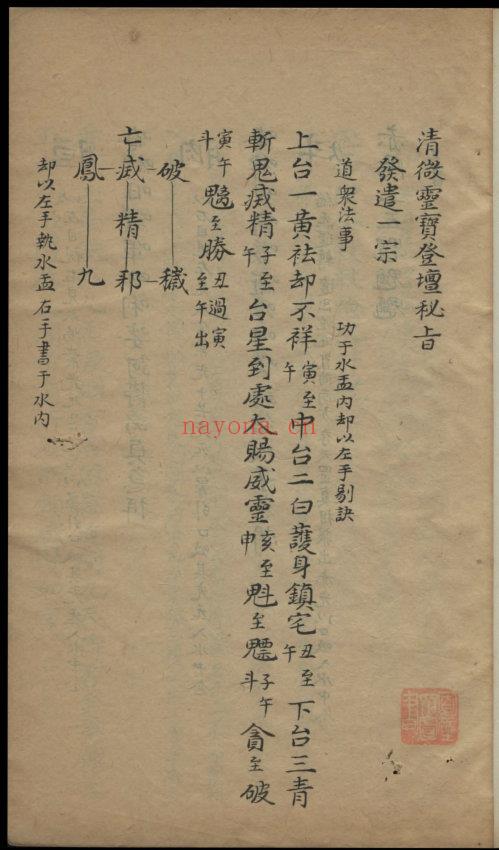 清微靈寶登壇秘旨
發遣一宗
道衆法事　功于水盂内却以左手剔訣
上台一黄祛却不祥寅至午中台二白護身鎮宅丑至午下台三青
斬鬼滅精子至午台星到處大賜威靈亥至申魁至魒子午斗貪至破
寅午斗魒至勝丑過寅至午出
破 穢
亡 滅 精 邪
鳳 九
却以左手執水盂右手書于水内
nayona.cn